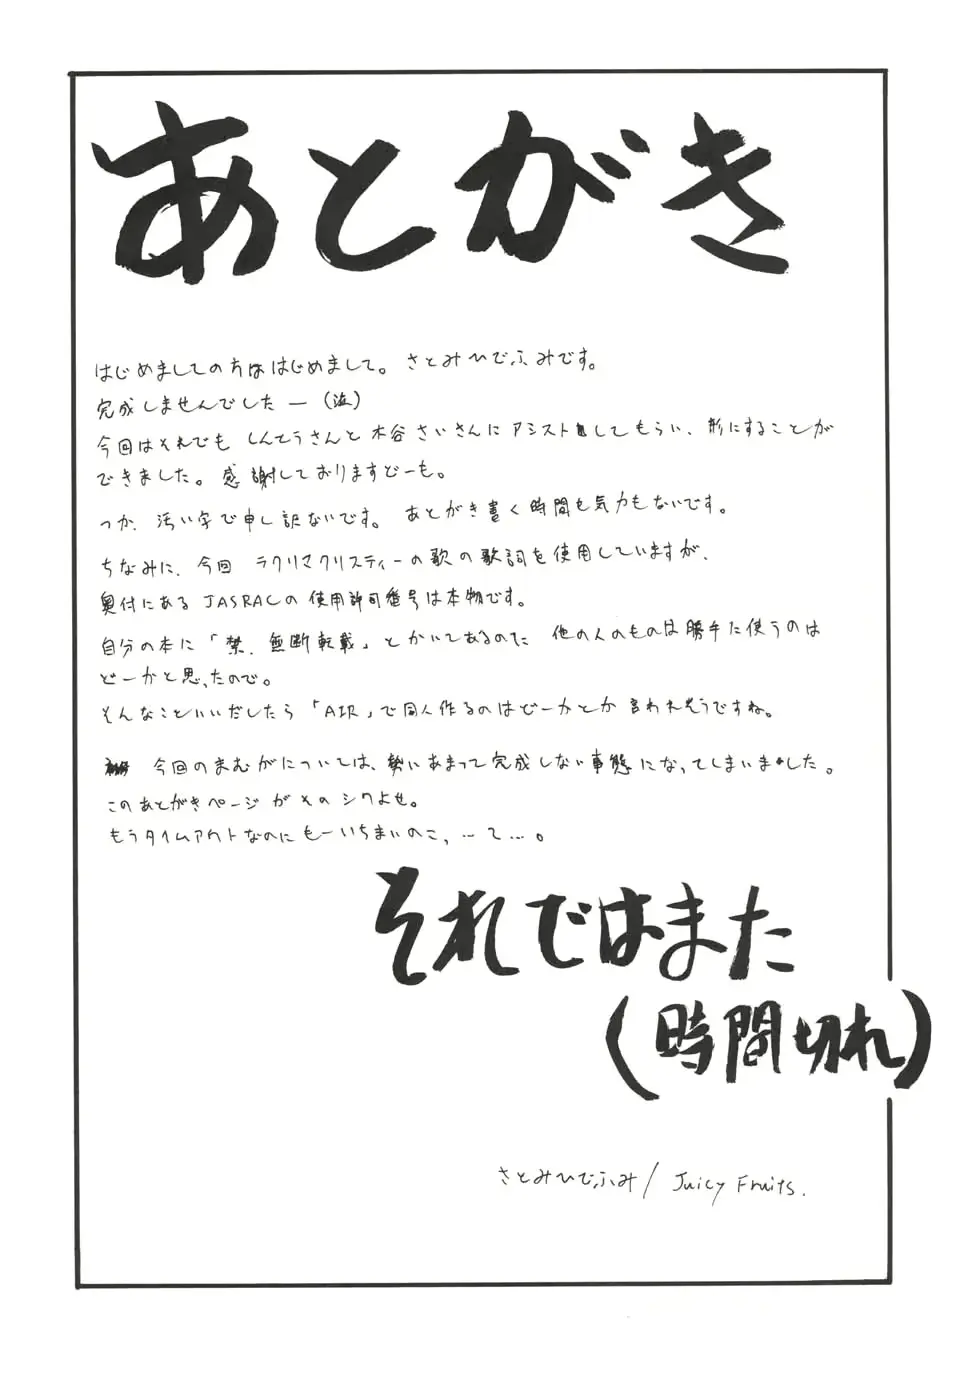 あとがき
はじめましての方ははじめまして。 さとみひでふみです。
完成しませんでしたー(泣)
今回はそれでも しんてうさんと 木谷さいさんに アシストしてもらい、形にすることが
できました。感謝しておりますどーも。
つか、汚い字で申し訳ないです。 あとがき書く時間も気力もないです。
ちなみに、今回 ラクリマクリスティーの歌の歌詞を使用していますが、
奥付にある JASRACの使用許可番号は本物です。
自分の本に「禁.無断転載」とかいてあるのに 他の人のものは勝手に使うのは
どーかと思ったので。
そんなこといいだしたら「AIR」で同人作るのはどーかとか 言われそうですね。
今回のまむがについては、勢いあまって完成しない事態になってしまいました。
このあとがきページがそのシワよせ。
もうタイムアウトなのにもーいちまいのこ、…て…。
それではまた
(時間切れ)
さとみひでふみ/Juicy Fruits.